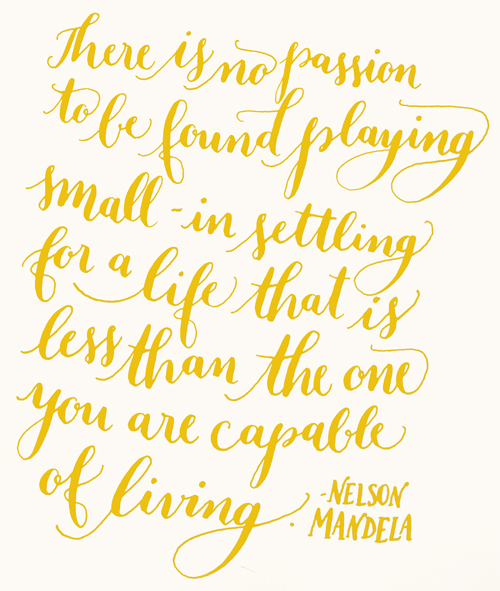 There is no passion
to be found playing
small - in settling
for a life that is
less than the one
you are capable
of living.
- NELSON
MANDELA